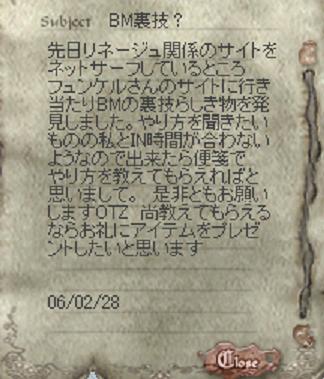 Subject BM裏技？
先日リネージュ関係のサイトを
ネットサーフしているところ
フュンケルさんのサイトに行き
当たりBMの裏技らしき物を発
見しました。やり方を聞きたい
ものの私とIN時間が合わない
ようなので出来たら便箋で
やり方を教えてもらえればと
思いまして。 是非ともお願い
しますOTZ 尚教えてもらえる
ならお礼にアイテムをプレゼ
ントしたいと思います
06/02/28
Close